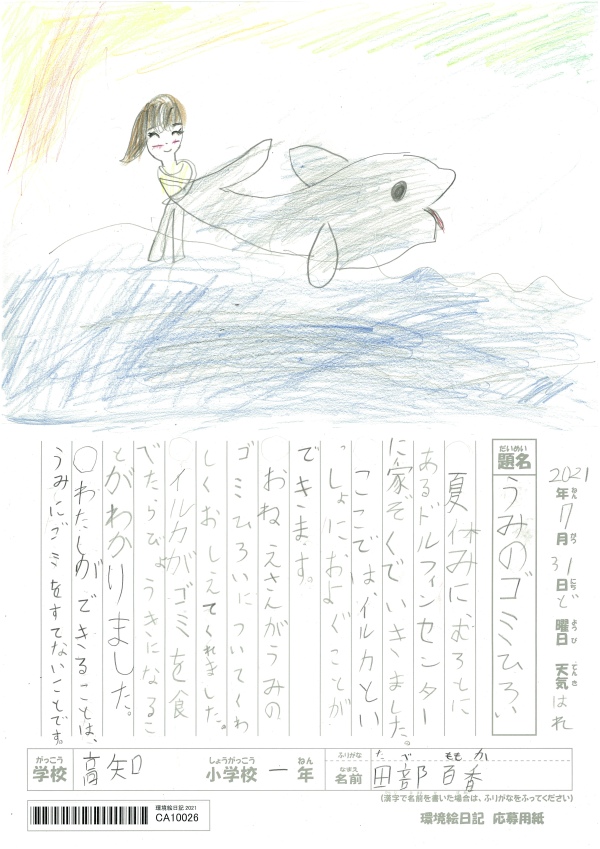 2021年7月31日ど曜日 天気はれ
ねん がつ にち ようび てんき
だいめい
題名
うみのゴミひろい
夏休みに、むろとに
あるドルフィンセンター
に家ぞくでいきました。
ここでは、イルカとい
っしょにおよぐことが
できます。
おねえさんがうみの
ゴミひろいについてくわ
しくおしえてくれました。
イルカがゴミを食
べたらびょうきになるこ
とがわかりました。
わたしができることは、
うみにゴミをすてないことです。
がっこう
学校
高知
しょうがっこう ねん
小学校 一年
ふりがな
たべ ももか
なまえ
名前
田部 百香
(漢字で名前を書いた場合は、ふりがなをふってください)
環境絵日記 2021
CA10026
環境絵日記 応募用紙